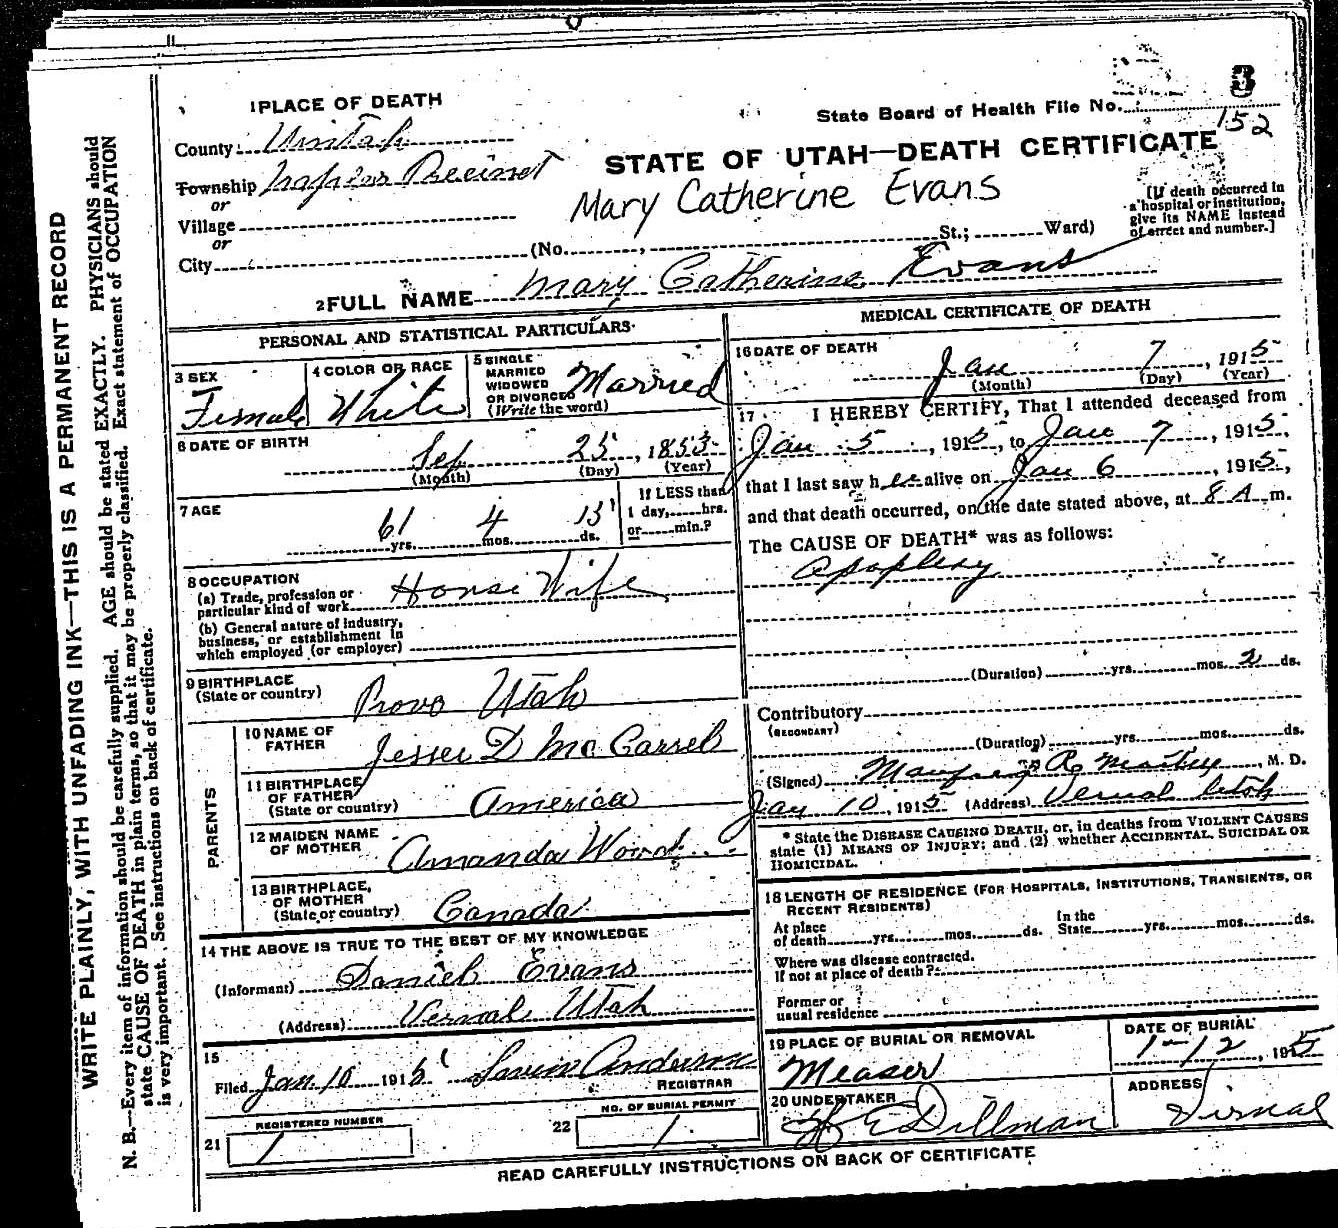 1 PLACE OF DEATH
State Board of Health File No.
3
152
County Uintah
STATE OF UTAH—DEATH CERTIFICATE
Township Precinct
Mary Catherine Evans
or
Village
or
City
(No. , St.; Ward)
[If death occurred in
a hospital or institution,
give its NAME instead
of street and number.]
2 FULL NAME Mary Catherine Evans
PERSONAL AND STATISTICAL PARTICULARS
3 SEX
Female
4 COLOR OR RACE
White
5 SINGLE
MARRIED
WIDOWED
OR DIVORCED
(Write the word)
Married
6 DATE OF BIRTH
Sep 25, 1853
(Month) (Day) (Year)
7 AGE
61 yrs. 4 mos. 13 ds.
If LESS than
1 day, hrs.
or min.?
8 OCCUPATION
(a) Trade, profession or
particular kind of work House Wife
(b) General nature of industry,
business, or establishment in
which employed (or employer)
9 BIRTHPLACE
(State or country) Provo Utah
PARENTS
10 NAME OF
FATHER Jesse D Mc Carrel
11 BIRTHPLACE
OF FATHER
(State or country) America
12 MAIDEN NAME
OF MOTHER Amanda
13 BIRTHPLACE,
OF MOTHER
(State or country) Canada
14 THE ABOVE IS TRUE TO THE BEST OF MY KNOWLEDGE
(Informant) Daniel Evans
(Address) Vernal Utah
15
Filed Jan. 10 1915
REGISTRAR
REGISTERED NUMBER
21 1
NO. OF BURIAL PERMIT
22 1
MEDICAL CERTIFICATE OF DEATH
16 DATE OF DEATH
Jan 7, 1915
(Month) (Day) (Year)
17 I HEREBY CERTIFY, That I attended deceased from
Jan 5, 1915, to Jan 7, 1915,
that I last saw her alive on Jan 6, 1915,
and that death occurred, on the date stated above, at 8 A m.
The CAUSE OF DEATH* was as follows:
Apoplexy
(Duration) yrs. mos. 2 ds.
Contributory
(SECONDARY)
(Duration) yrs. mos. ds.
(Signed) , M. D.
Jan 10, 1915 (Address) Vernal Utah
* State the DISEASE CAUSING DEATH, or, in deaths from VIOLENT CAUSES
state (1) MEANS OF INJURY; and (2) whether ACCIDENTAL, SUICIDAL OR
HOMICIDAL.
18 LENGTH OF RESIDENCE (FOR HOSPITALS, INSTITUTIONS, TRANSIENTS, OR
RECENT RESIDENTS)
At place
of death yrs. mos. ds.
In the
State yrs. mos. ds.
Where was disease contracted.
if not at place of death?
Former or
usual residence
19 PLACE OF BURIAL OR REMOVAL
Measer
DATE OF BURIAL
1-12, 1915
20 UNDERTAKER
Dillman
ADDRESS
Virnal
READ CAREFULLY INSTRUCTIONS ON BACK OF CERTIFICATE
WRITE PLAINLY, WITH UNFADING INK—THIS IS A PERMANENT RECORD
N. B.—Every item of information should be carefully supplied. AGE should be stated EXACTLY. PHYSICIANS should
state CAUSE OF DEATH in plain terms, so that it may be properly classified. Exact statement of OCCUPATION
is very important. See instructions on back of certificate.